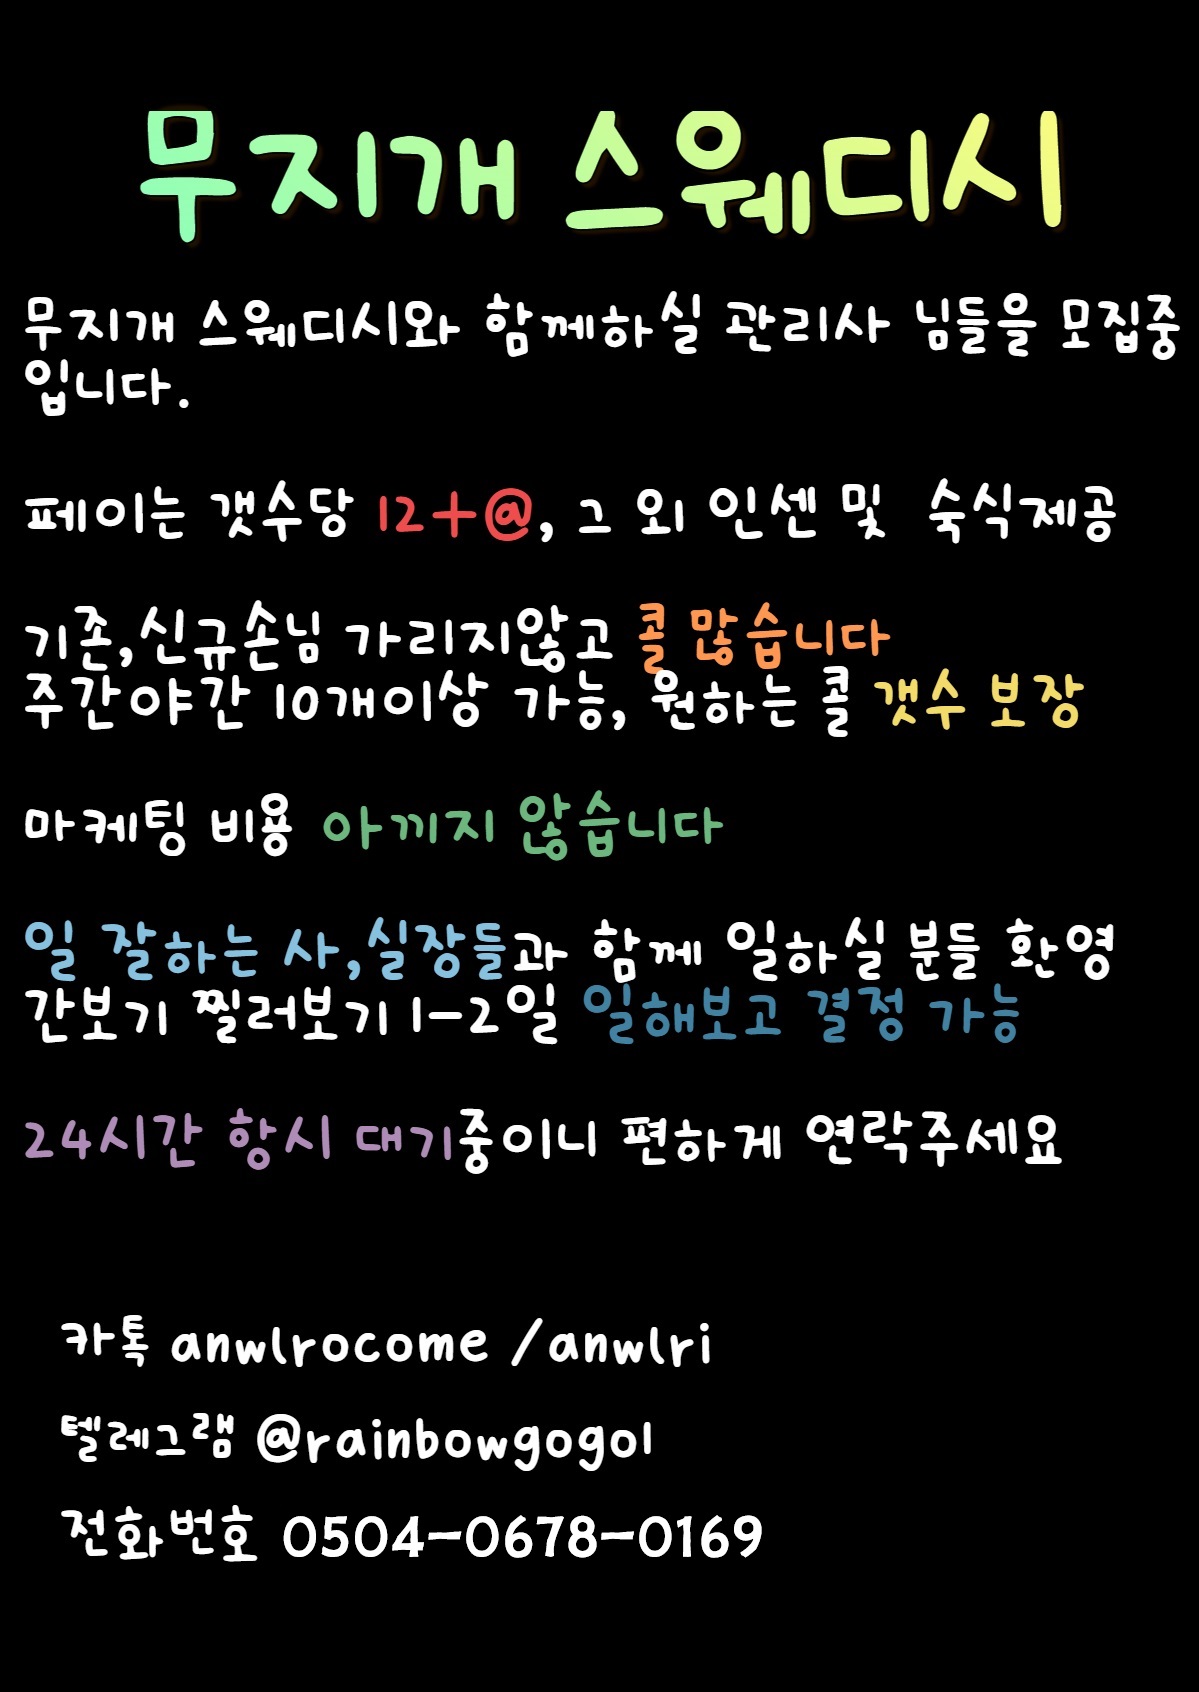 무지개 스웨디시
무지개 스웨디시와 함께하실 관리사 님들을 모집중
입니다.
페이는 갯수당 12+@, 그 외 인센 및 숙식제공
기존,신규손님 가리지않고 콜 많습니다
주간야간 10개이상 가능, 원하는 콜 갯수 보장
마케팅 비용 아끼지 않습니다
일 잘하는 사,실장들과 함께 일하실 분들 환영
간보기 찔러보기 1-2일 일해보고 결정 가능
24시간 항시 대기중이니 편하게 연락주세요
카톡 anwlrocome /anwlri
텔레그램 @rainbowgogo1
전화번호 0504-0678-0169